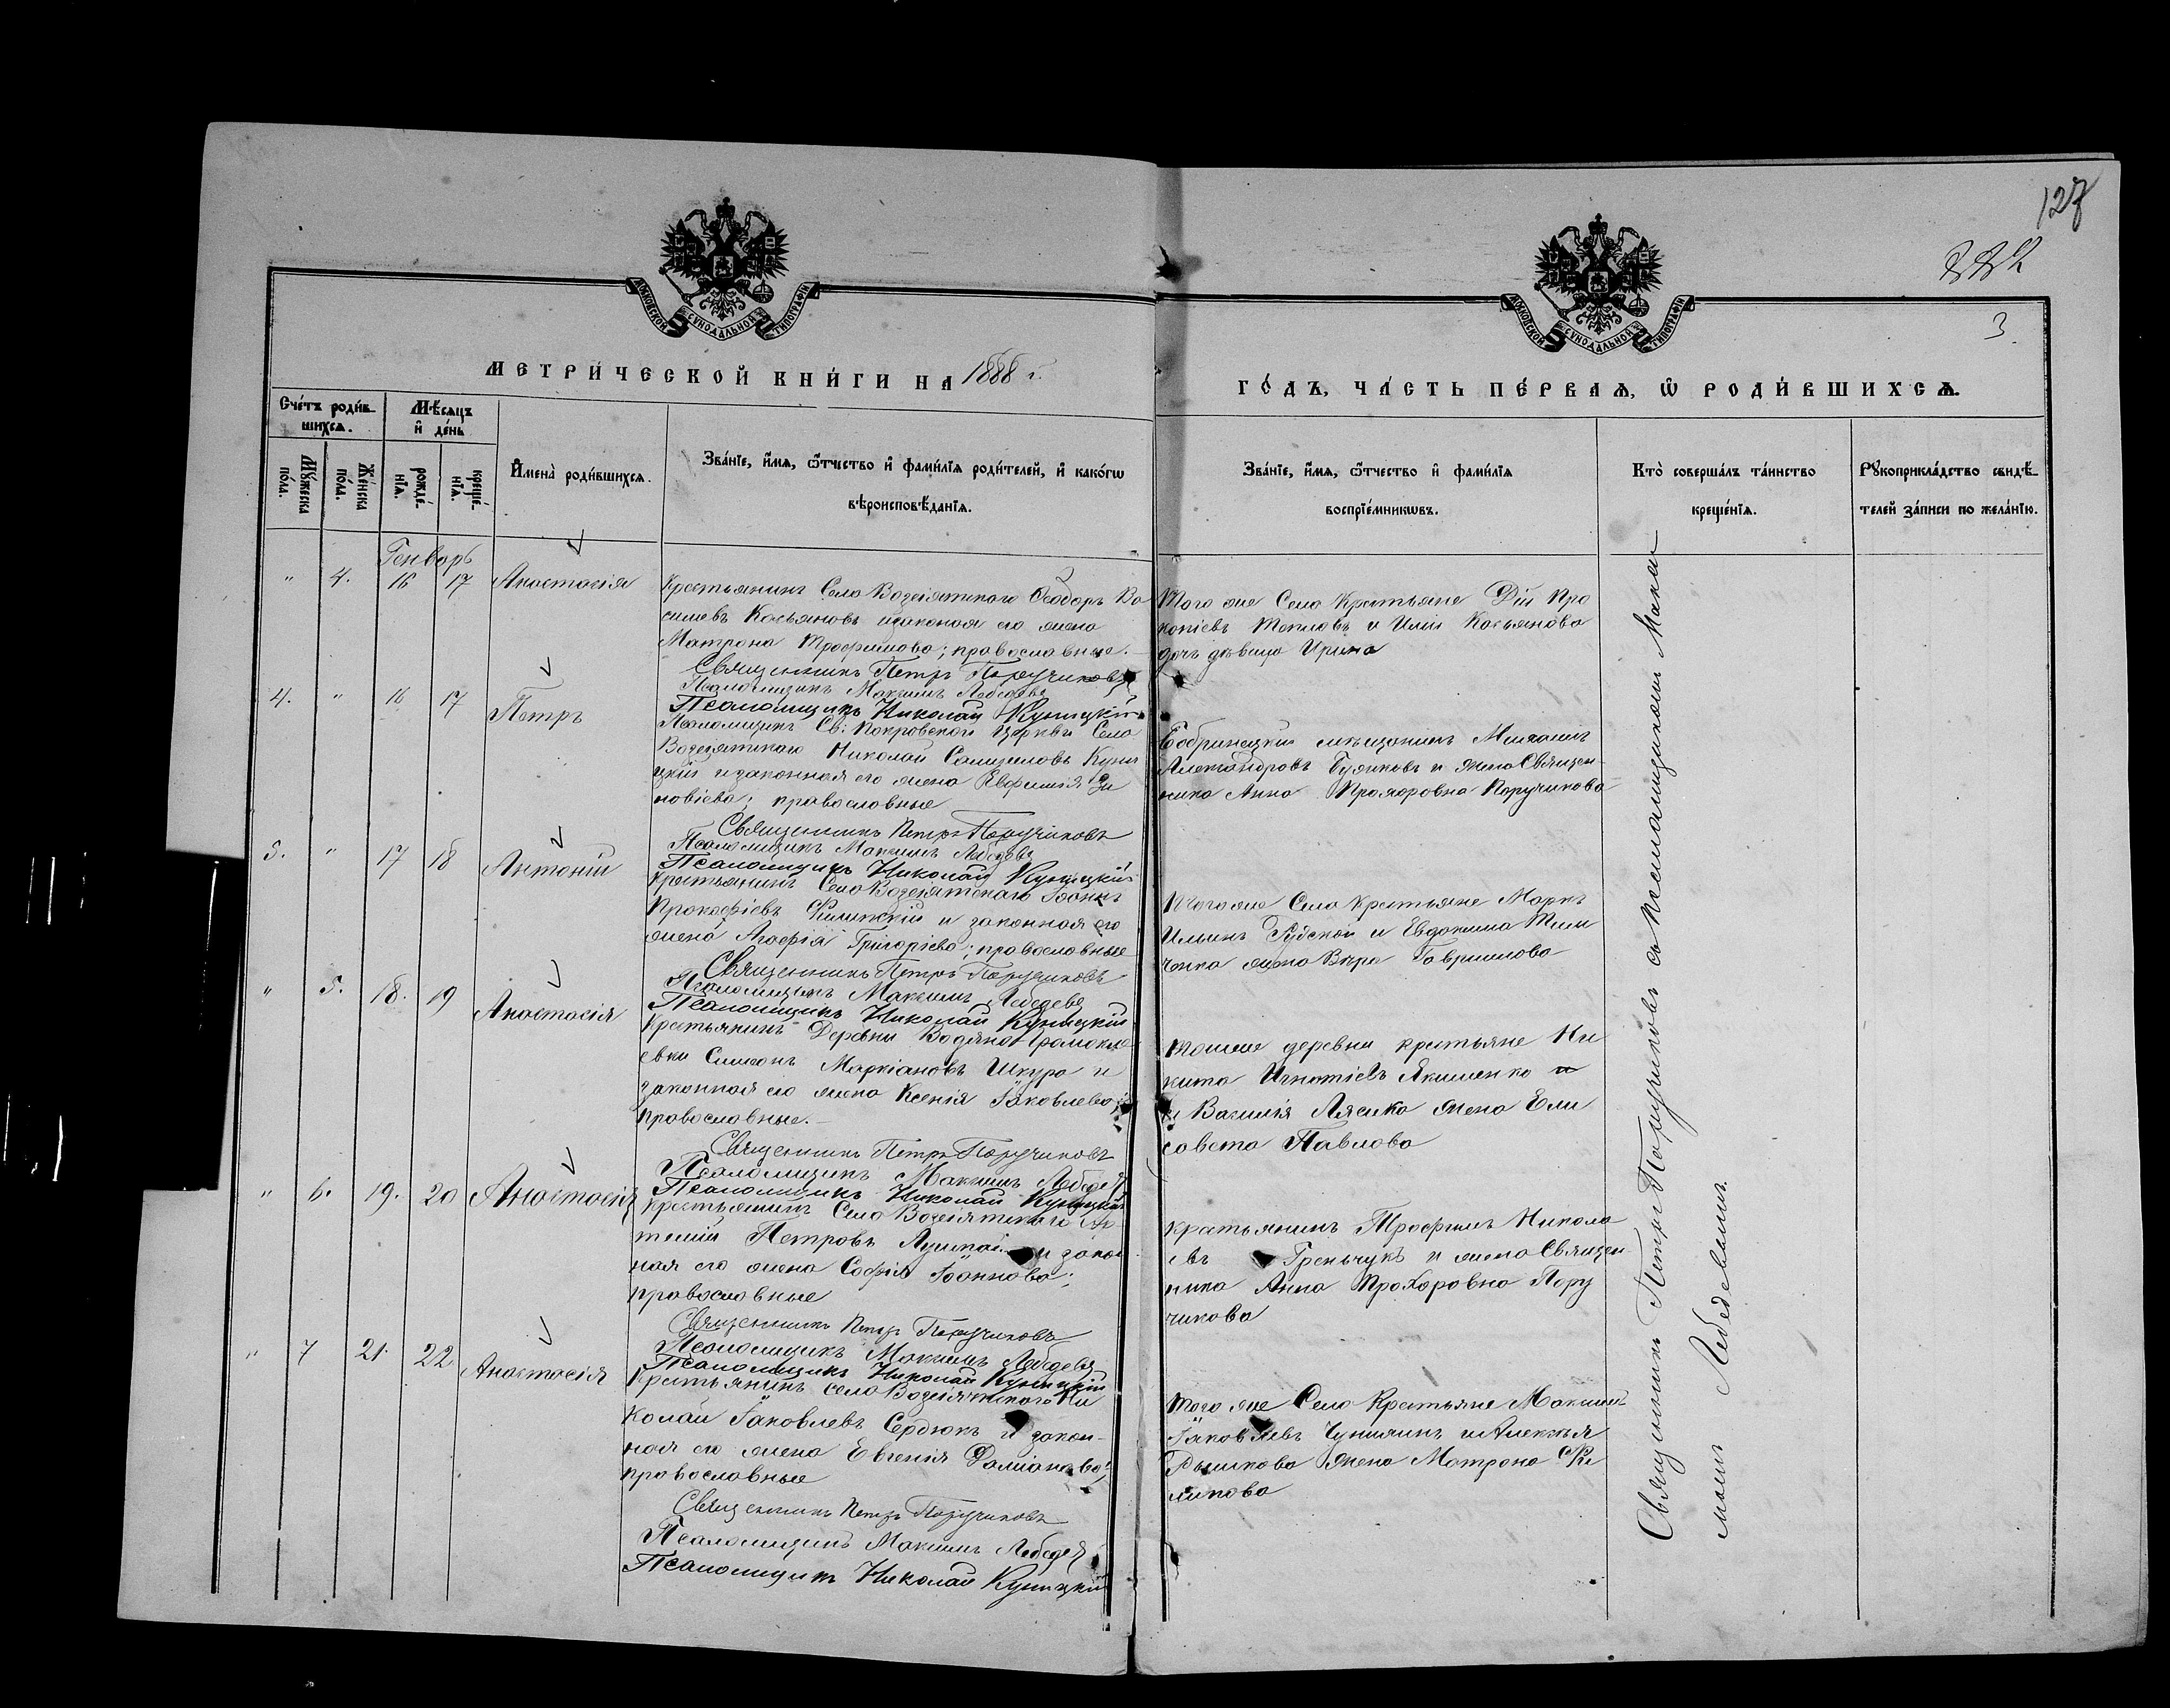 127
3
МОСКОВСКОЙ СѴНОДАЛЬНОЙ ТИПОГРАФІИ
МОСКОВСКОЙ СѴНОДАЛЬНОЙ ТИПОГРАФІИ
МЕТРИ́ЧЕСКОЙ КНИ́ГИ НА 1888 г.
ГО́ДЪ, ЧА́СТЬ ПЕ́РВАѦ, Ѡ РОДИ́ВШИХСѦ.
Сче́тъ роди́в-
шихсѧ.
Мѣ́сѧцъ
и҆ де́нь
Мꙋ́жеска
по́ла.
Же́нска
по́ла.
рожде́-
нїѧ.
креще́-
нїѧ.
И҆мена̀ роди́вшихсѧ.
Зва́нїе, и҆́мѧ, ѻ҆́тчество и҆ фами́лїѧ роди́телей, и҆ како́гѡ
вѣроисповѣ́данїѧ.
Зва́нїе, и҆́мѧ, ѻ҆́тчество и҆ фами́лїѧ
воспрїе́мникѡвъ.
Кто̀ соверша́лъ та́инство
креще́нїѧ.
Рꙋкоприкла́дство свидѣ́-
телей за́писи по жела́нїю.
Генварь
" 4. 16 17 Анастасія
Крестьянинъ Села Возсіятскаго Ѳеодоръ Ва
сильевъ Касьяновъ и законая его жена
Матрона Трофимова; православные.
Священникъ Петръ Поручиковъ
Псаломщикъ Максимъ Лебедевъ
Псаломщикъ Николай Куницкій
Того же Села Крестьяне Дій Про
копіевъ и Иліи Касьянова
дочь дѣвица Ирина
4. " 16 17 Петръ
Псаломщикъ Св: Покровской Церкви Села
Возсіятскаго Николай Самуиловъ Куни
цкій и законная его жена Евфимія Зи
новіева; православные
Священникъ Петръ Поручиковъ
Псаломщикъ Максимъ Лебедевъ
Псаломщикъ Николай Куницкій
Бобринецкій мѣщанинъ Михаилъ
Александровъ и жена Священ-
ника Анна Прохоровна Поручикова
5. " 17 18 Антоній
Крестьянинъ Села Возсіятскаго Іоаннъ
Прокофіевъ и законная его
жена Агафія Григоріева; православные
Священникъ Петръ Поручиковъ
Псаломщикъ Максимъ Лебедевъ
Псаломщикъ Николай Куницкій
Того же Села Крестьяне Маркъ
Ильинъ Рудской и Евдокима Тим
ченка жена Вѣра Гавриилова
" 5. 18. 19 Анастасія
Крестьянинъ Деревни Водяно Громокле
евки Симеонъ Маркіановъ Шкура и
законная его жена Ксенія Іаковлева;
православные.
Священникъ Петръ Поручиковъ
Псаломщикъ Максимъ Лебедев
Псаломщикъ Николай Куницкій
тойже деревни крестьяне Ни
кита Игнатіевъ Якименко и
и Василія Лясика жена Ели
савета Павлова
" 6. 19. 20 Анастасія
Крестьянинъ Села Возсіятскаго
Петровъ и закон
ная его жена Софія Іоаннова;
православные
Священникъ Петръ Поручиковъ
Псаломщикъ Максимъ Лебедевъ
Псаломщикъ Николай Куницкій
крестьянинъ Трофимъ Никола
евъ Гренчукъ и жена Священ
ника Анна Прохоровна Пору
чикова
" 7 21. 22. Анастасія
Крестьянинъ села Возсіятскаго Ни
колай Іаковлевъ Сердюкъ и закон-
ная его жена Евгенія Даміанова;
православные
Священникъ Петръ Поручиковъ
Псаломщикъ Максимъ Лебедев
Псаломщикъ Николай Куницкій
Того же Села Крестьяне Максимъ
Іаковлевъ и Алексѣя
Рыжкова жена Матрона Фи
липова
Священникъ Петръ Поручиковъ съ Псаломщикомъ Макси
момъ Лебедевымъ.